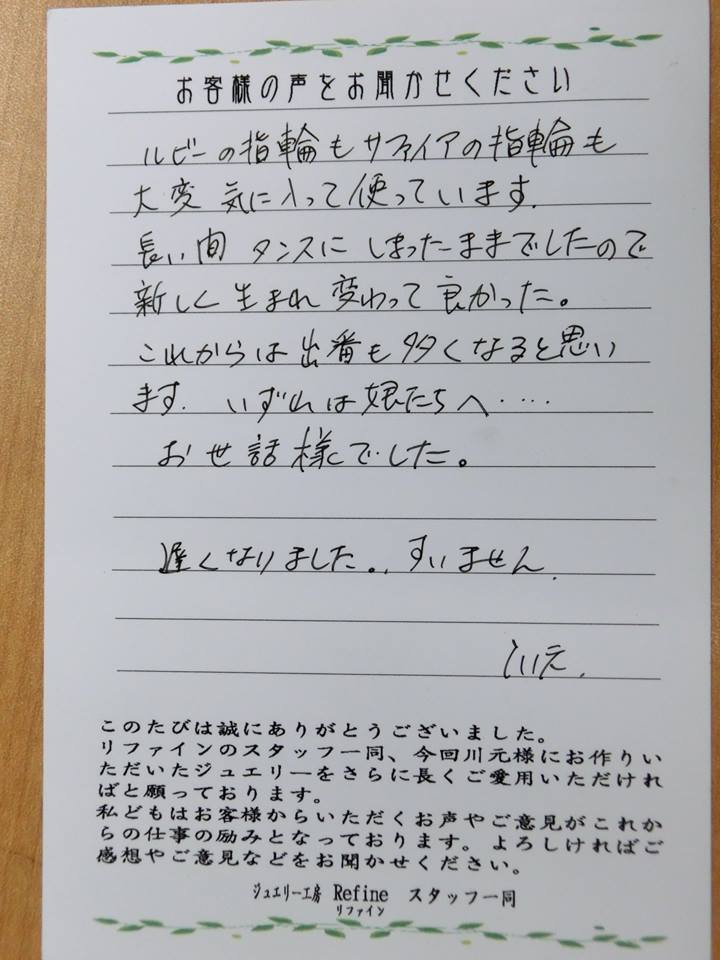 お客様の声をお聞かせください
ルビーの指輪もサファイアの指輪も
大変気に入って使っています.
長い間 タンスに しまったままでしたので
新しく生まれ変わって良かった。
これからは出番も多くなると思い
ます. いずれは娘たちへ・・・・
お世話様でした。
遅くなりました。. すいません.
このたびは誠にありがとうございました。
リファインのスタッフ一同、今回川元様にお作りい
ただいたジュエリーをさらに長くご愛用いただけれ
ばと願っております。
私どもはお客様からいただくお声やご意見がこれか
らの仕事の励みとなっております。よろしければご
感想やご意見などをお聞かせください。
ジュエリー工房 Refine スタッフ一同
リファイン